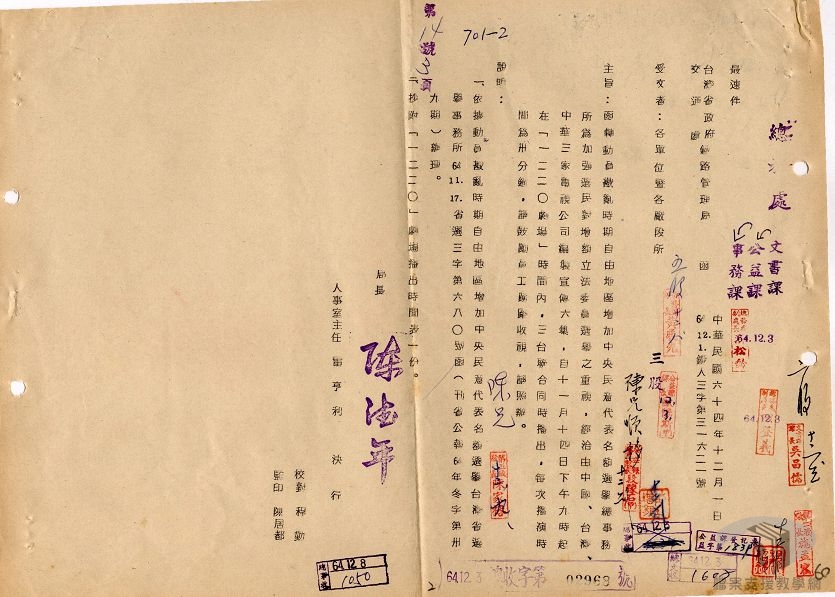 總務處
文書課
公益課
事務課
最速件
台灣省政府鐵路管理局 函
交通處
中華民國六十四年十二月一日
64.12.1.鐵人三字第三一六二一號
受文者：各單位暨各廠段所
主旨：函轉動員戡亂時期自由地區增加中央民意代表名額選舉總事務
所為加強選民對增額立法委員選舉之重視，經洽由中國、台灣、
中華三家電視公司編製宣傳六集，自十一月十四日下午九時起
在「一二二〇劇場」時間內，三台聯合同時播出，每次播演時
間為卅分鐘，請鼓勵員工踴躍收視，請照辦。
說明：
一、依據動員戡亂時期自由地區增加中央民意代表名額選舉台灣省選
舉事務所64.11.17.省選三字第六八〇號函（刊省公報64年冬字第卅
九期）辦理。
二、抄附「一二二〇」劇場播出時間表一份。
局長 陳德年
人事室主任 雷亨利 決行
校對 程勤
監印 陳居都
第14號3頁
701-2
64.12.3
三股
12.3.
陳兄
吳昌儒
64.12.3
64.12.8
1050
64.12.3 收字第 03968 號
1607
60
2
檔案支援教學網